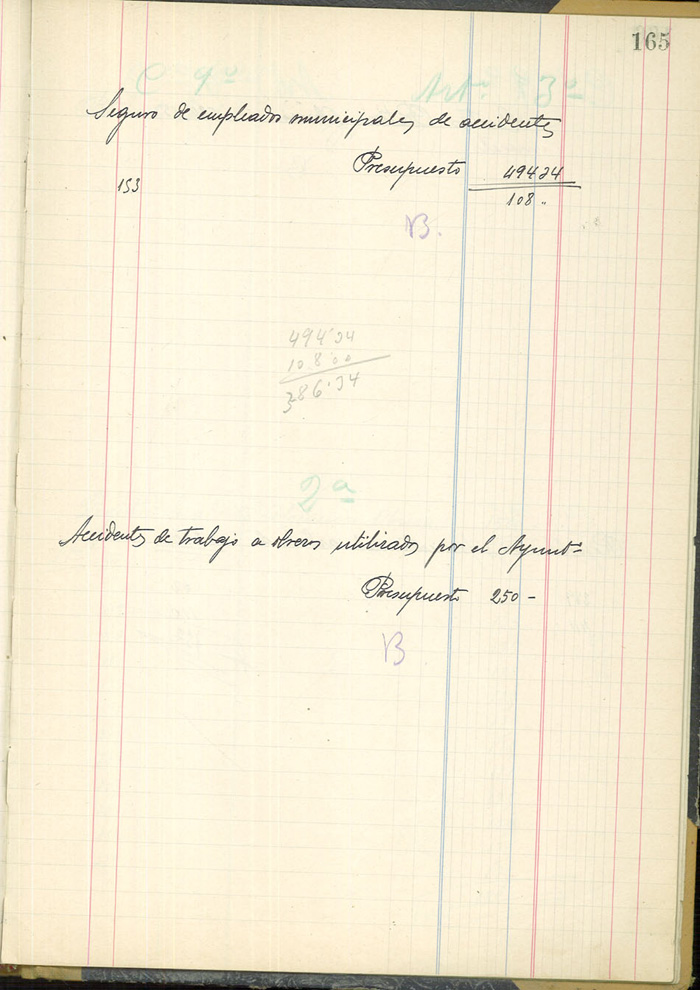 165
C 9º Artº 3º
Seguro de empleados municipales de accidentes
Presupuesto 494 34
153
108 "
B.
494'34
108'00
386'34
2ª
Accidentes de trabajo a obreros utilizados por el Ayuntº
Presupuesto 250 -
B